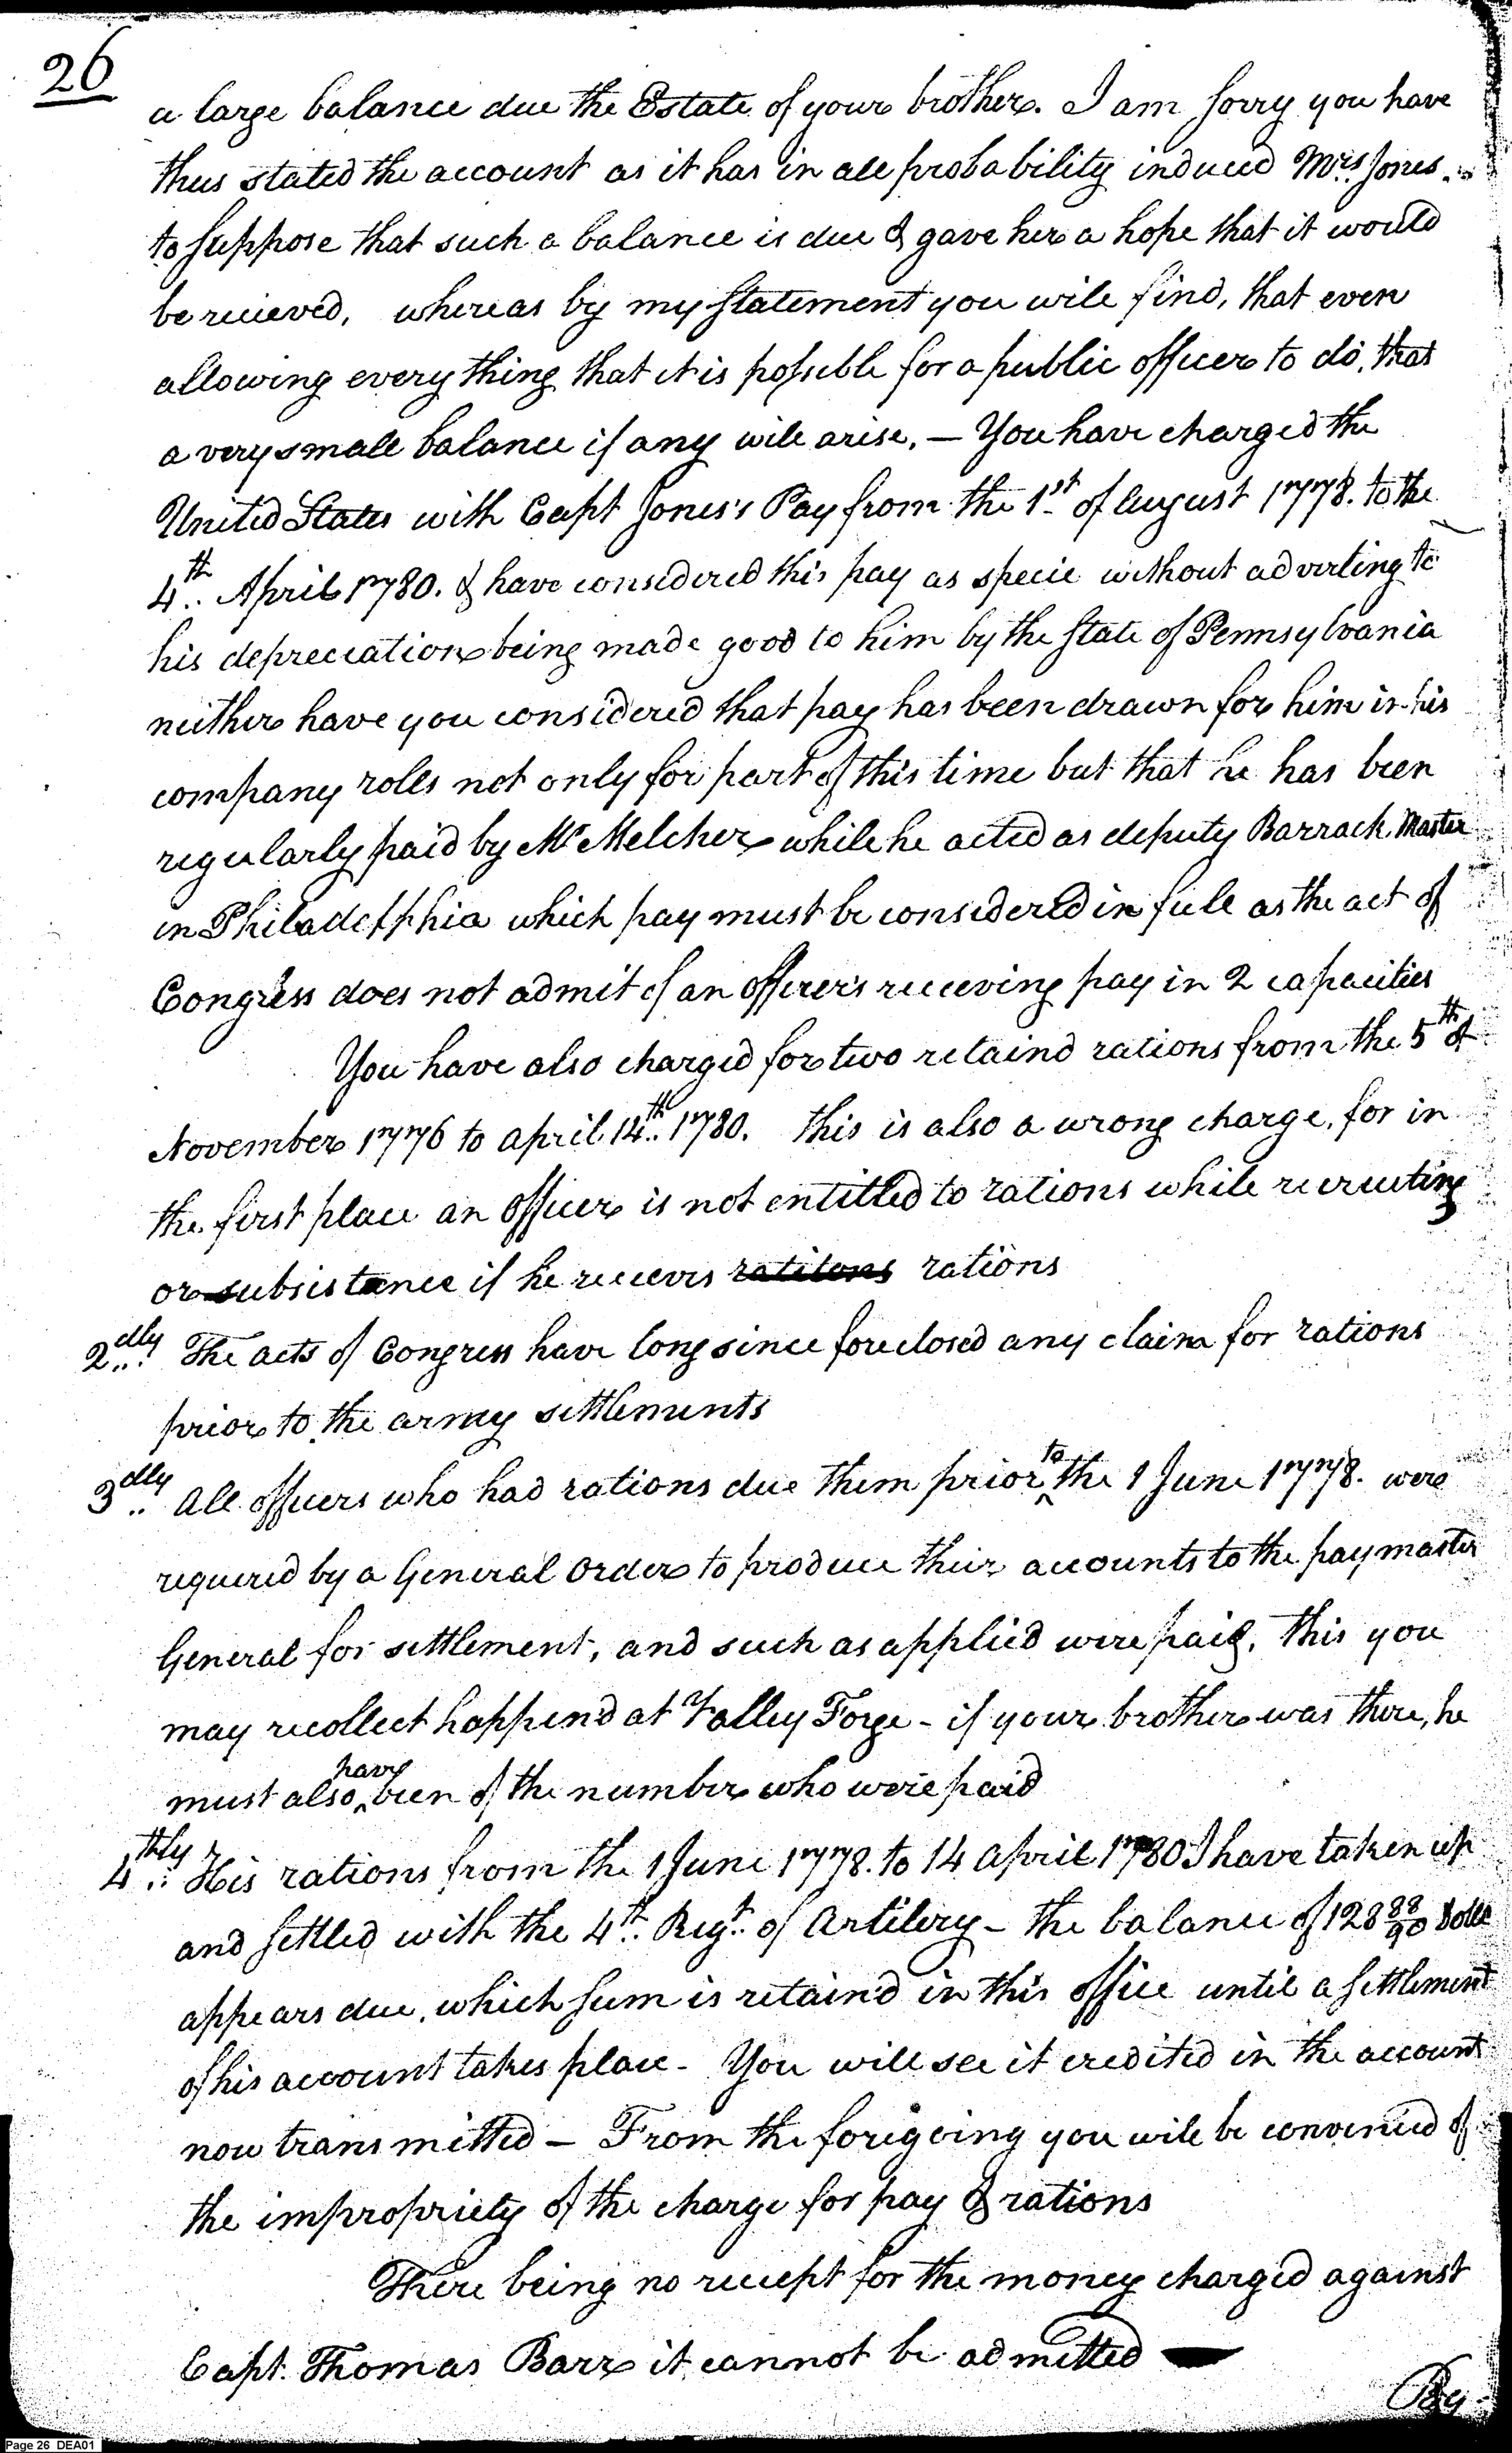 26
a large balance due the Estate of your brother. I am sorry you have
thus stated the account as it has in all probability induced Mrs. Jones
to suppose that such a balance is due & gave her a hope that it would
be recieved, whereas by my statement you will find, that even
allowing every thing that it is possible for a public officer to do, that
a very small balance if any will arise, — You have charged the
United States with Capt Jones's Pay from the 1st of August 1778. to the
4th April 1780. & have considered this pay as specie without adverting to
his depreciation being made good to him by the State of Pennsylvania
neither have you considered that pay has been drawn for him in his
company rolls not only for part of this time but that he has been
regularly paid by Mr Melcher while he acted as deputy Barrack Master
in Philadelphia which pay must be considered in full as the act of
Congress does not admit of an officers receiving pay in 2 capacities
You have also charged for two retaind rations from the 5th of
November 1776 to april 14th 1780. this is also a wrong charge, for in
the first place an officer is not entitled to rations while recruiting
or subsistance if he recieves ratitons rations
2dly The acts of Congress have long since foreclosed any claim for rations
prior to the army settlements
3dly All officers who had rations due them prior to the 1 June 1778. were
requered by a General order to produce their accounts to the paymaster
General for settlement, and such as applied were paid, this you
may recollect happend at Valley Forge - if your brother was there, he
must also have been of the number who were paid
4thly His rations from the 1 June 1778. to 14 april 1780 I have taken up
and settled with the 4th Regt. of Artilery - the balance of 128 88/90 Dolls
appears due, which sum is retain'd in this office until a settlement
of his account takes place - You will see it credited in the account
now transmitted — From the foregoing you will be convinced of
the impropriety of the charge for pay & rations
There being no reciept for the money charged against
Capt. Thomas Barr it cannot be admitted —
By
Page 26 DEA01